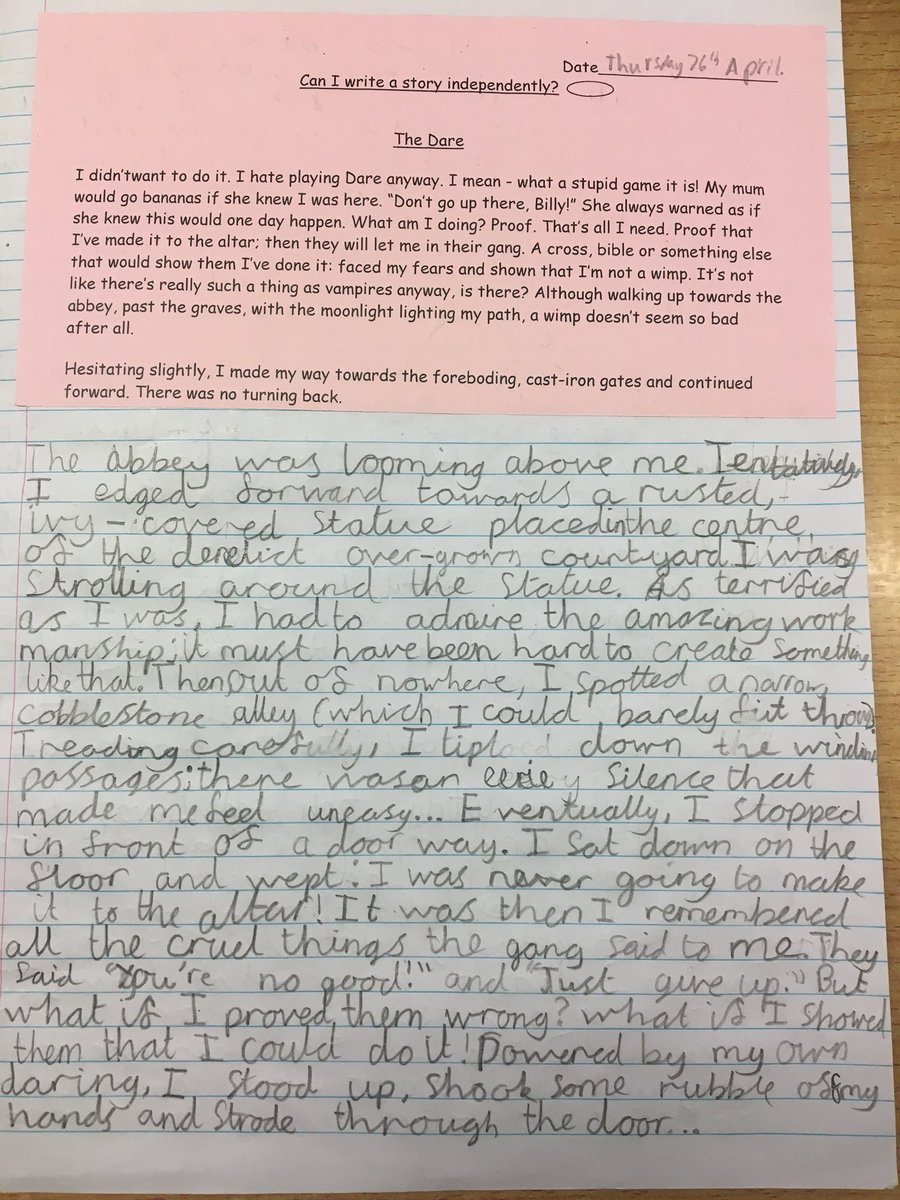 Date Thursday 26th April.
Can I write a story independently?
The Dare
I didn'twant to do it. I hate playing Dare anyway. I mean - what a stupid game it is! My mum
would go bananas if she knew I was here. "Don't go up there, Billy!" She always warned as if
she knew this would one day happen. What am I doing? Proof. That's all I need. Proof that
I've made it to the altar; then they will let me in their gang. A cross, bible or something else
that would show them I've done it: faced my fears and shown that I'm not a wimp. It's not
like there's really such a thing as vampires anyway, is there? Although walking up towards the
abbey, past the graves, with the moonlight lighting my path, a wimp doesn't seem so bad
after all.
Hesitating slightly, I made my way towards the foreboding, cast-iron gates and continued
forward. There was no turning back.
The abbey was looming above me. Tentatively,
I edged forward towards a rusted,
ivy-covered statue placed in the centre
of the derelict over-grown courtyard. I was
strolling around the statue. As terrified
as I was, I had to admire the amazing work
manship; it must have been hard to create something
like that. Then, out of nowhere, I spotted a narrow,
cobblestone alley (which I could barely fit
Treading carefully, I down the
passages; there was an silence that
made me feel uneasy... Eventually, I stopped
in front of a door way. I sat down on the
floor and wept. I was never going to make
it to the altar! It was then I remembered
all the cruel things the gang said to me. They
said "You're no good!" and "Just give up." But
what if I proved them wrong? what if I showed
them that I could do it! Powered by my own
daring, I stood up, shook some rubble off my
hands and strode through the door...